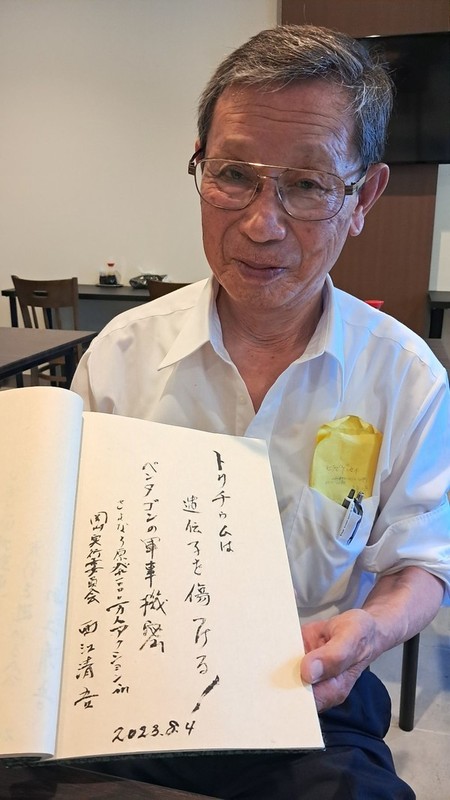 トリチウムは
遺伝子を傷つける!
ペンタゴンの軍事機密
さよなら原発一〇〇〇万人アクションin
岡山実行委員会 西江清吾
2023.8.4